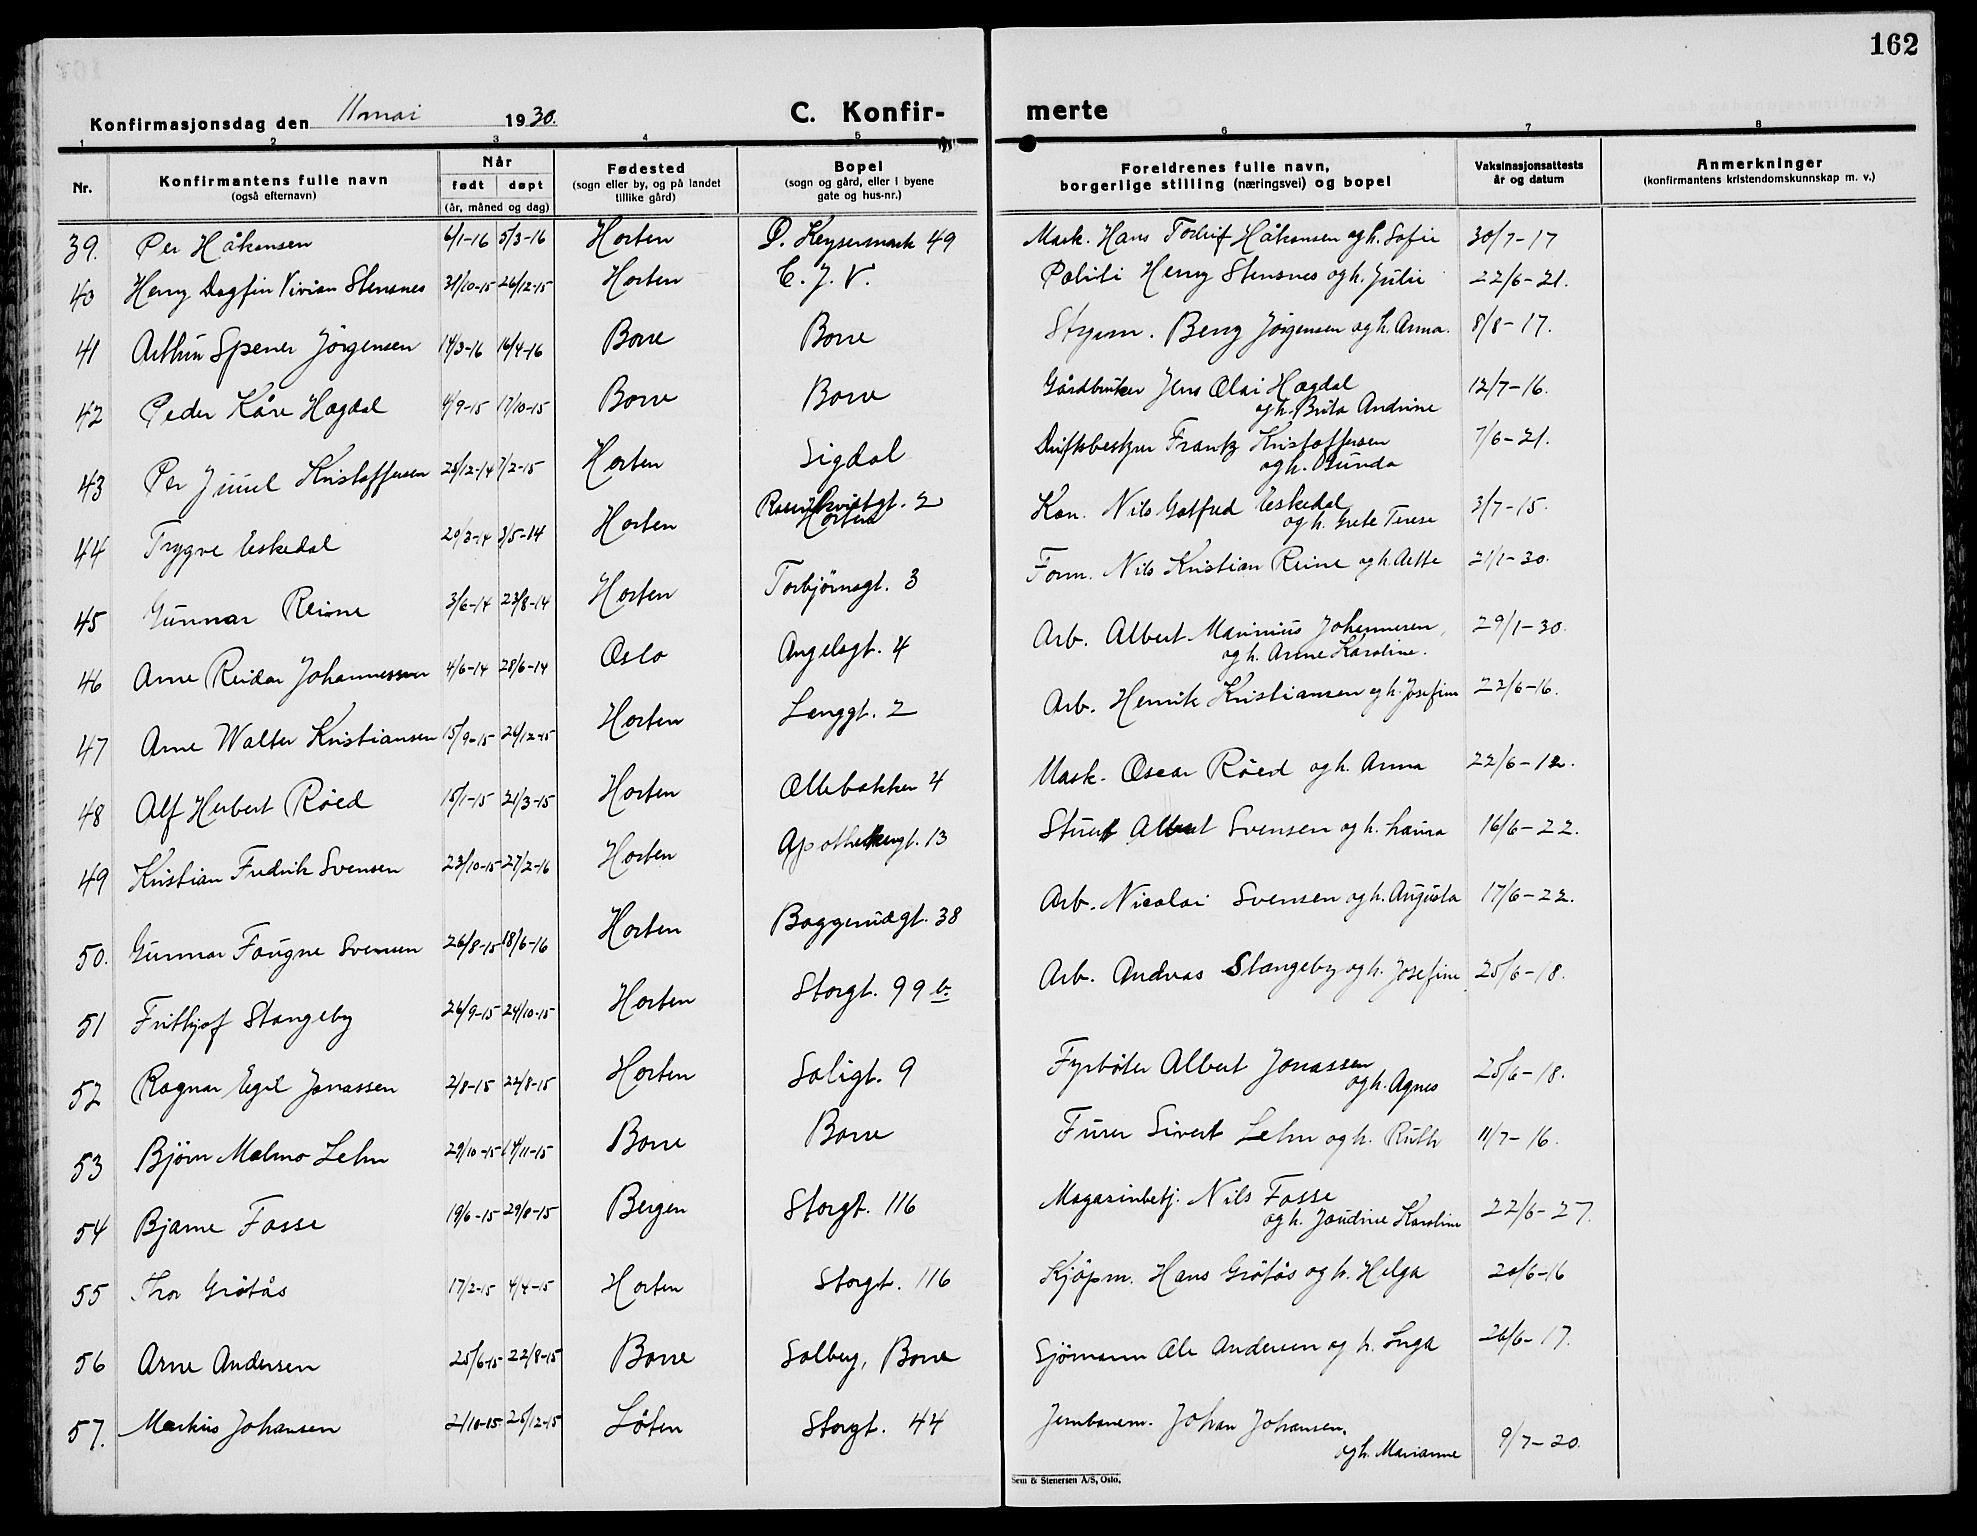 162
Konfirmasjonsdag den 11 mai 1930.
C. Konfir-
merte
1 2 3 4 5 6 7 8
Nr.
Konfirmantens fulle navn
(også efternavn)
Når
født døpt
(år, måned og dag)
Fødested
(sogn eller by, og på landet
tillike gård)
Bopel
(sogn og gård, eller i byene
gate og hus-nr.)
Foreldrenes fulle navn,
borgerlige stilling (næringsvei) og bopel
Vaksinasjonsattests
år og datum
Anmerkninger
(konfirmantens kristendomskunnskap m. v.)
39. Per Håkonsen 6/1-16 5/3-16 Horten D. Keysersmark 49 Mask. Hans Torleif Håkonsen og h. Sofie 30/7-17
40 Henry Dagfin Vivian Stensnes 31/10-15 26/12-15 Horten C. J. V. Politi Henry Stensnes og h. Julie 22/6-21.
41 Arthur Spener Jørgensen 14/3-16 16/4-16 Borre Borre Styrm. Jørgensen og h. Anna. 8/8-17.
42 Peder Kåre Hagdal 4/9-15 17/10-15 Borre Borre Gårdbruker Jens Olai Hagdal
og h. Brita Andrine 12/7-16.
43 Per Juuel Kristoffersen 25/12-14 7/2-15 Horten Sigdal Driftsbestyrer Frantz Kristoffersen
og h. Gunda 7/6-21.
44 Trygve Eskedal 20/3-14 3/5-14 Horten 2
Horten Kan. Nils Gotfred Eskedal
og h. Grete Terese 3/7-15.
45 Gunnar Reine 3/6-14 23/8-14 Horten Torbjørnsgt. 3 Form. Nils Kristian Reine og h. Aette 21/1-30.
46 Arne Reidar Johannessen 4/6-14 28/6-14 Oslo Angelsgt. 4 Arb. Albert Marinius Johannesen,
og h. Anne Karoline. 29/1-30.
47 Arne Walter Kristiansen 15/9-15 26/12-15 Horten Langgt. 2 Arb. Henrik Kristiansen og h. Josefine 22/6-16.
48 Alf Herbert Röed 15/1-15 21/3-15 Horten Ollebakken 4 Mask. Oscar Röed og h. Anna 22/6-12.
49 Kristian Fredrik Svensen 23/10-15 27/2-16 Horten Apothekergt. 13 Albert Svensen og h. Laura 16/6-22.
50. Gunnar Faugne Svensen 26/8-15 18/6-16 Horten Baggerudgt. 38 Arb. Nicolai Svensen og h. Augusta 17/6-22.
51 Frithjof Stangeby 26/9-15 24/10-15 Horten Storgt. 99 b. Arb. Andreas Stangeby og h. Josefine 25/6-18.
52 Ragnar Egil Jonassen 2/8-15 22/8-15 Horten Soligt. 9 Fyrböter Albert Jonassen
og h. Agnes 25/6-18.
53 Björn Malmo Lehn 29/10-15 14/11-15 Borre Borre Furer Sivert Lehn og h. Ruth 11/7-16.
54 Bjarne Fosse 19/6-15 29/8-15 Bergen Storgt. 116 Magasinbetj. Nils Fosse
og h. Jaudine Karoline 22/6-27.
55 Thor Grötås 17/2-15 4/4-15 Horten Storgt. 116 Kjöpm. Hans Grötås og h. Helga 20/6-16
56 Arne Andersen 25/6-15 22/8-15 Borre Solberg, Borre Sjömann Ole Andersen og h. Inga 26/6-17.
57. Markus Johansen 2/10-15 25/12-15 Löten Storgt. 44 Jernbanem. Johan Johansen.
og h. Marianne 9/7-20.
Sem & Stenersen A/S, Oslo.